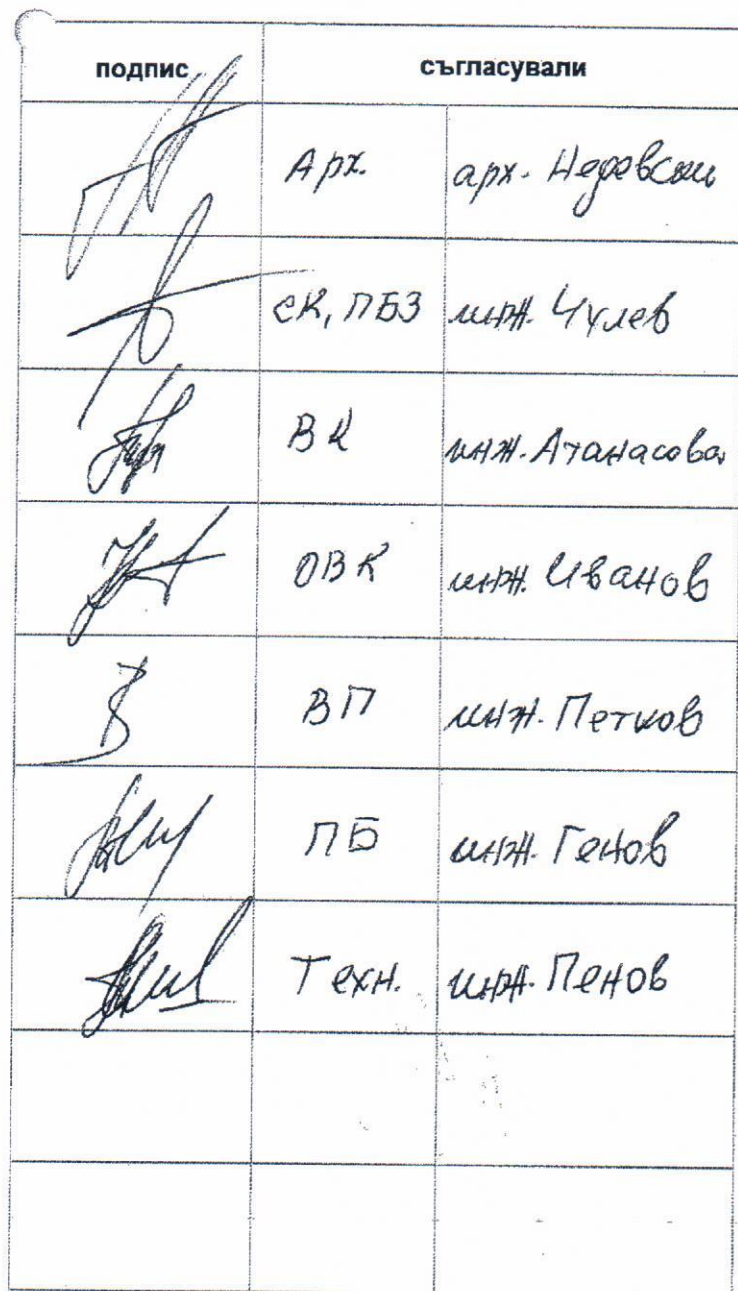 подпис съгласували
Арх. арх. Недевски
СК, ПБЗ инж. Чулев
ВК инж. Атанасова
ОВК инж. Иванов
ВП инж. Петков
ПБ инж. Генов
Техн. инж. Пенов